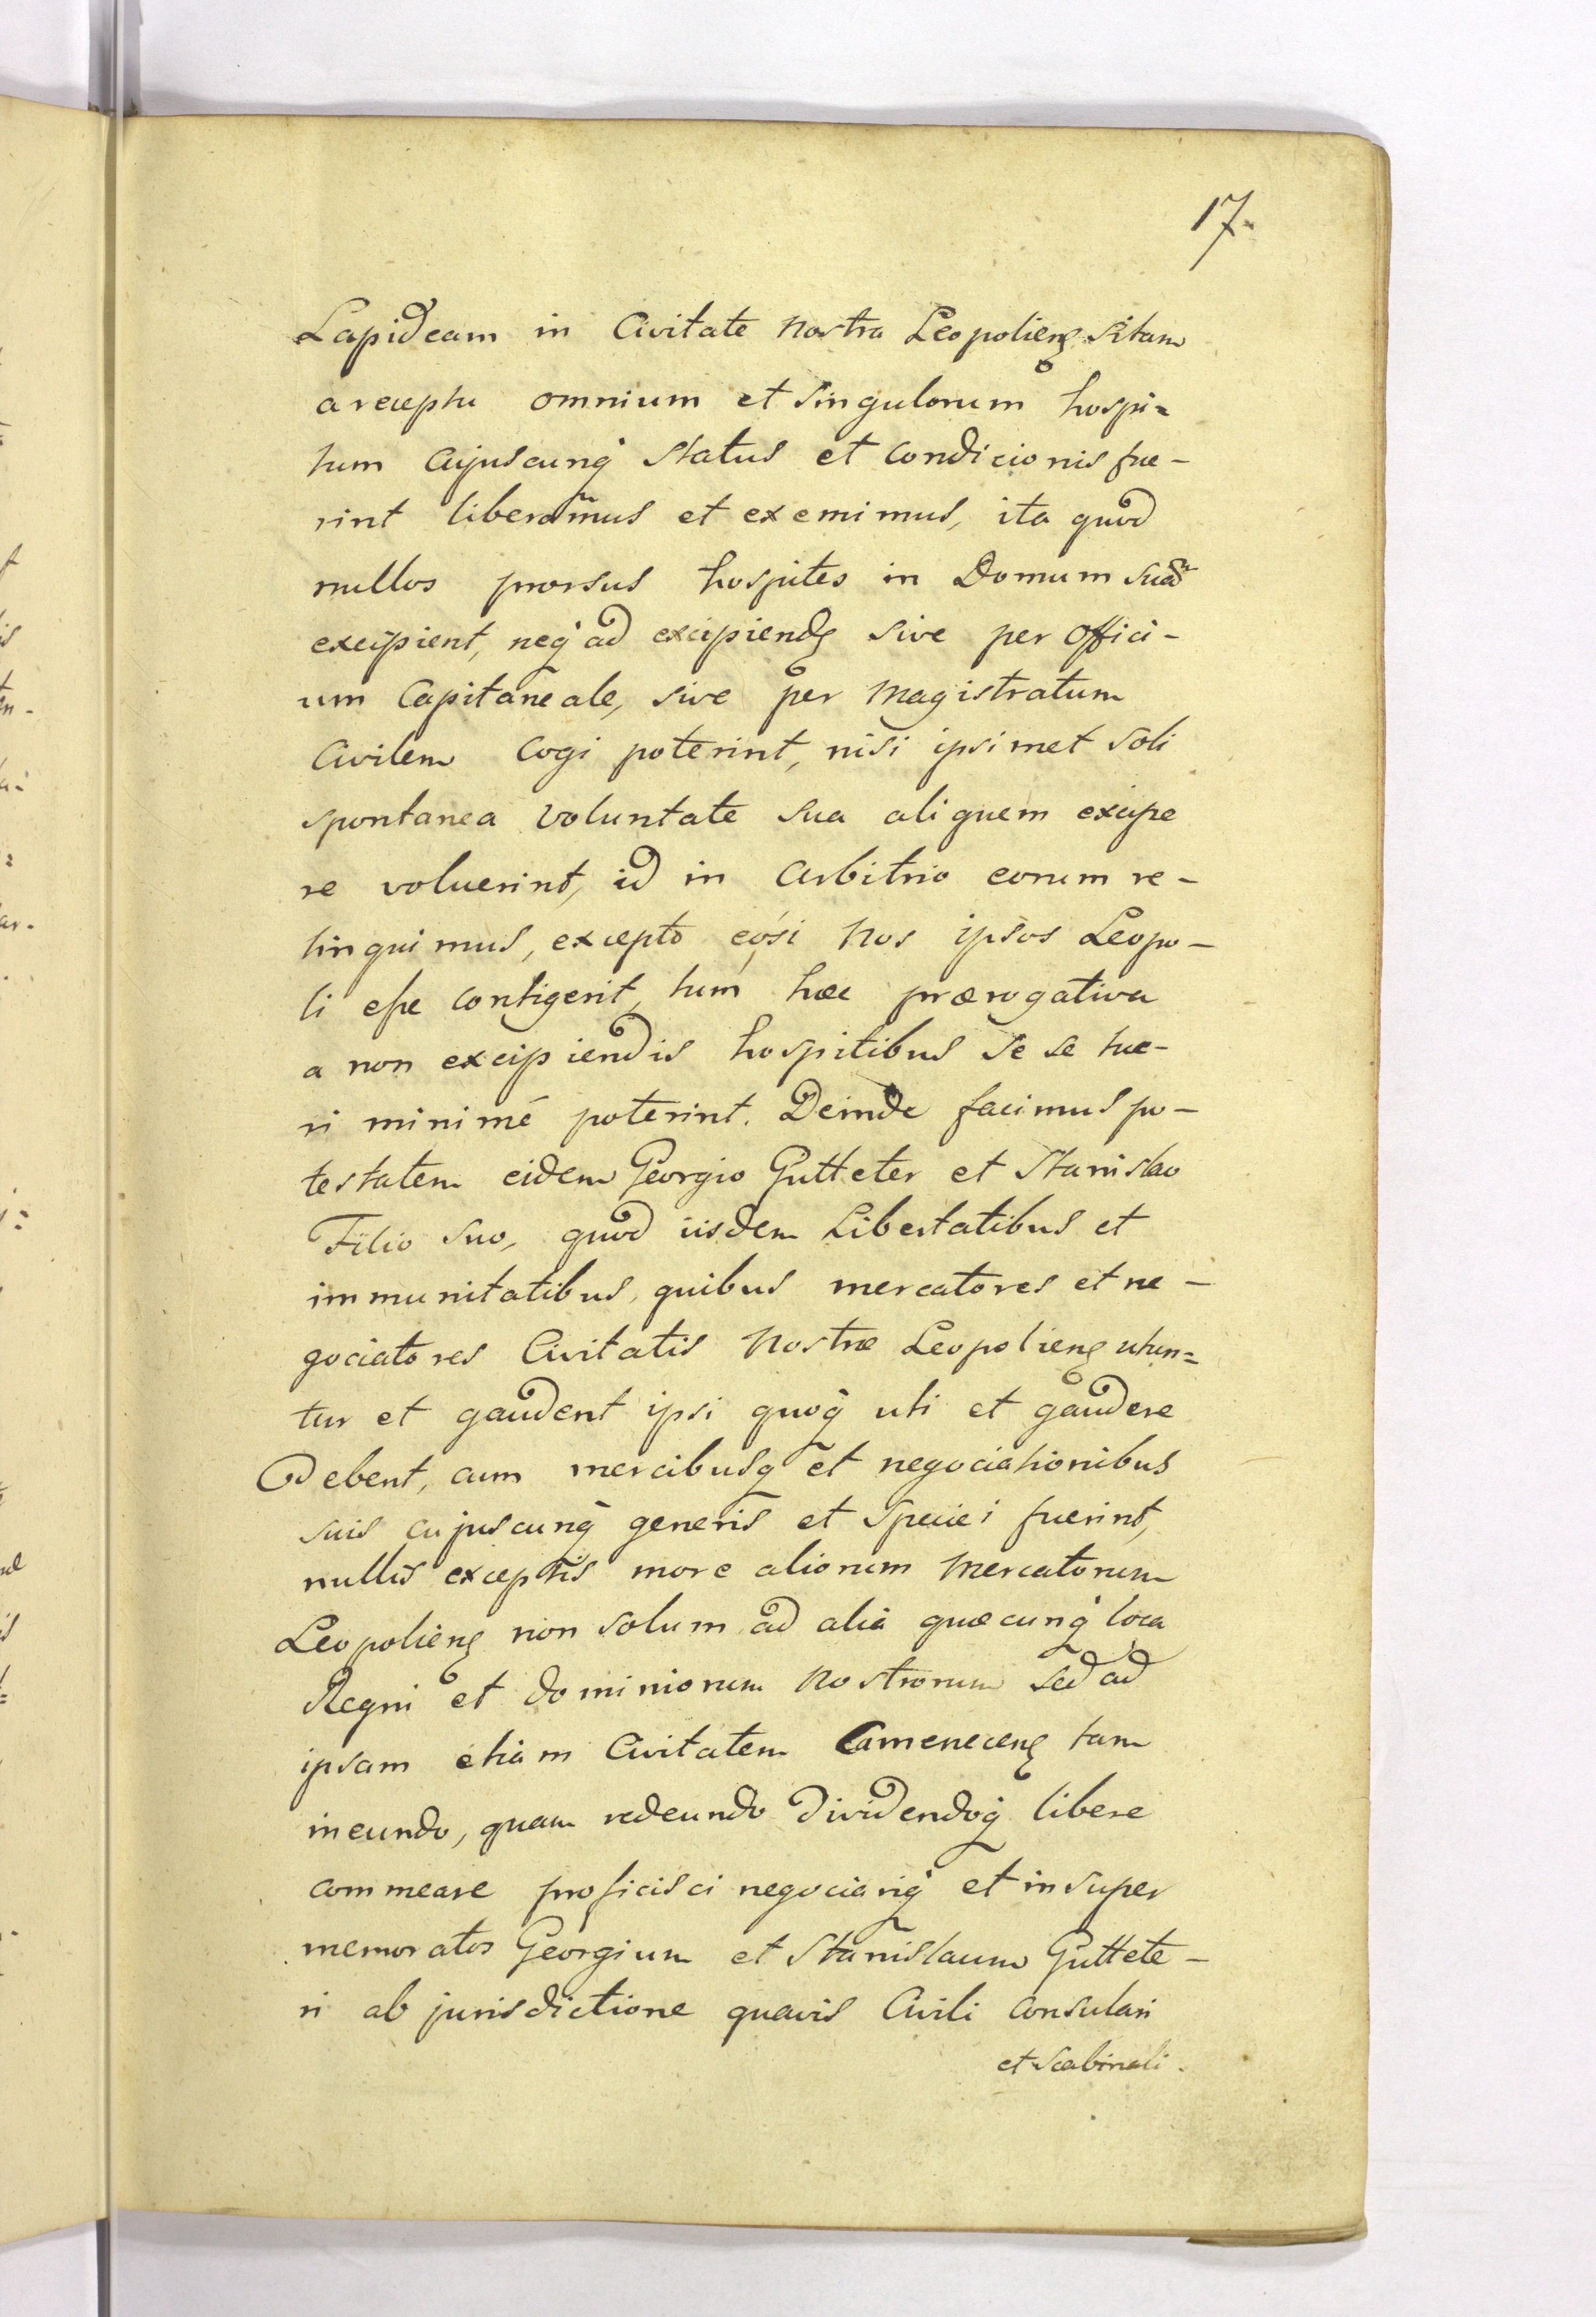 17.
Lapideam in Civitate nostra Leopolienꝭ sitam
a receptu omnium et singulorum hospi=
tum cujuscunq̃ status et condicionis fue-
rint liberam̃us et exemimus, ita quod
nullos prorsus hospites in Domum suã
excipient, neq̃ ad excipiendꝭ sive per offici-
um Capitaneale, sive per Magistratum
Civilem cogi poterint, nisi ipsimet soli
spontanea voluntate sua aliquem excipe
re voluerint, id in arbitrio eorum re-
linquimus, excepto eo, si nos ipsos Leopo-
li eſse contigerit, tum hac prærogativa
a non excipiendis hospitibus se se tue-
ri minimé poterint. Deinde facimus po-
testatem eidem Georgio Gutteter et Stanislao
Filio suo, quod iisdem Libertatibus et
immunitatibus, quibus mercatores et ne-
gociatores Civitatis Nostræ Leopolienꝭ utun=
tur et gaudent ipsi quoq̃ uti et gaudere
Debent, cum mercibusq̃ et negociationibus
suis cujuscunq̃ generis et speciei fuerint,
nullis exceptis more aliorum Mercatorum
Leopolienꝭ non solum ad alia quæcunq̃ loca
Regni et dominiorum nostrorum sed ad
ipsam etiam Civitatem Camenecenꝭ tam
ineundo, quam redeundo Dividendoq̃ libere
commeare proficisci negociariq̃ et insuper
memoratos Georgium et Stanislaum Guttete-
ri ab jurisdictione quavis Civili Consulari
et Scabinali.